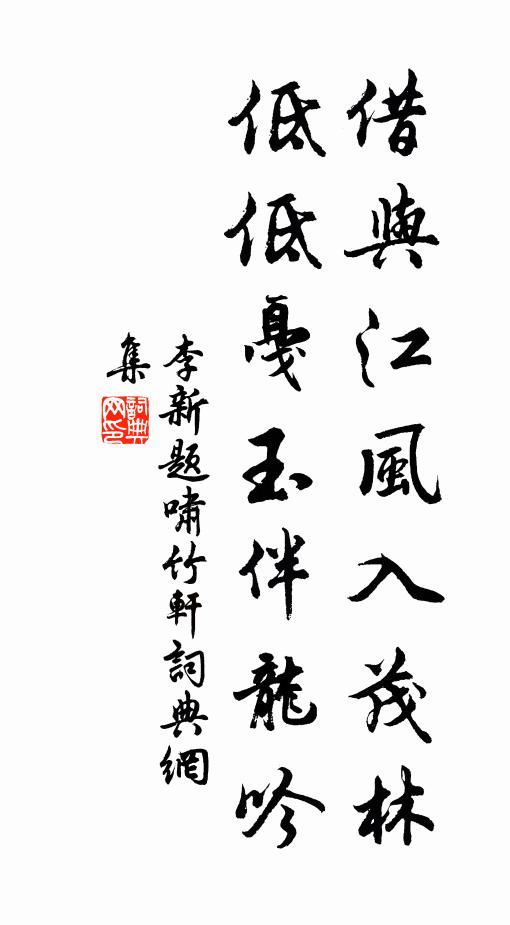 借與江風入茂林
低低戛玉伴龍吟
李新題嘯竹軒詞典網
集
詞典网印